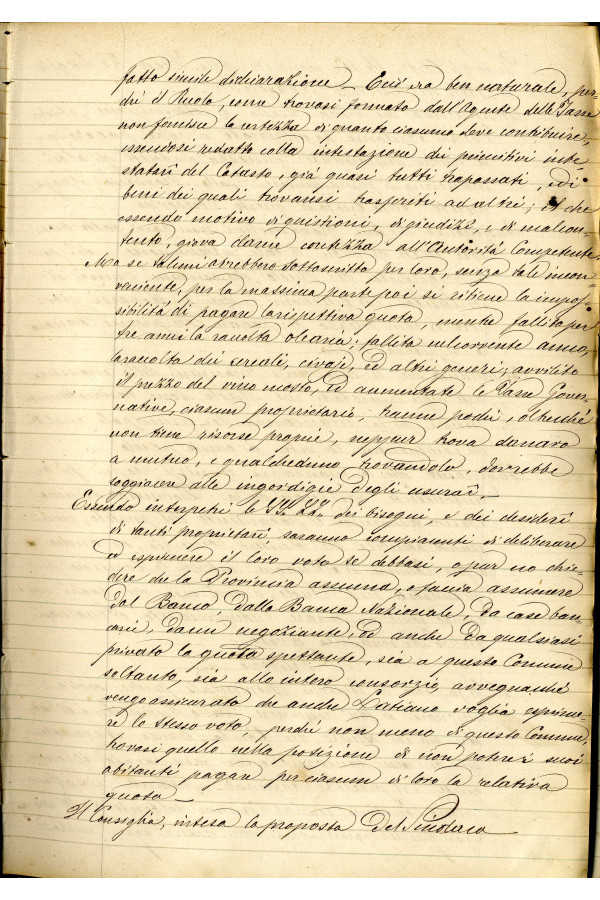 fatto simile dichiarazione _ Ecc'era ben naturale, per-
chè il Ruolo, come trovasi formato dall'Agente delle Tasse
non fornisce la certezza di quanto ciascuno deve contribuire,
essendosi redatto colla intestazione dei primitivi inte-
statarî del Catasto, già quasi tutti trapassati, ed i
beni dei quali trovansi trasferiti ad altri; il che
essendo motivo di quistioni, di giudizî, e di malcon-
tento, giova darne contezza all'Autorità Competente.
Ma se taluni avrebbero sottoscritto per loro, senza tale incon-
veniente, per la massima parte poi si ritiene la impos-
sibilità di pagare la rispettiva quota, mentre fallita per
tre anni la raccolta olearia; fallita nel corrente anno,
la raccolta dei cereali, civaje, ed altri generi; avvilito
il prezzo del vino mosto, ed aumentate le Tasse Gover-
native, ciascun proprietario, tranne pochi, oltrechè
non tiene risorse proprie, neppur trova danaro
a mutuo, e qualcheduno trovandolo, dovrebbe
soggiacere alle ingordigie degli usurai._
Essendo interpetri le SS. LL. dei bisogni, e dei desiderî
di tanti proprietarî, saranno compiacenti di deliberare
ed esprimere il loro voto se debbasi, o pur no chie-
dere che la Provincia assuma, o faccia assumere
dal Banco, dalla Banca Nazionale, da case ban-
carie, da un negoziante, od anche da qualsiasi
privato la quota spettante, sia a questo Comune
soltanto, sia allo intero consorzio, avvegnachè
vengo assicurato che anche Latiano voglia esprime-
re lo stesso voto, perchè non meno di questo Comune,
trovasi quello nella posizione di non potere i suoi
abitanti pagare per ciascun di loro la relativa
quota _
Il Consiglio, intesa la proposta del Sindaco